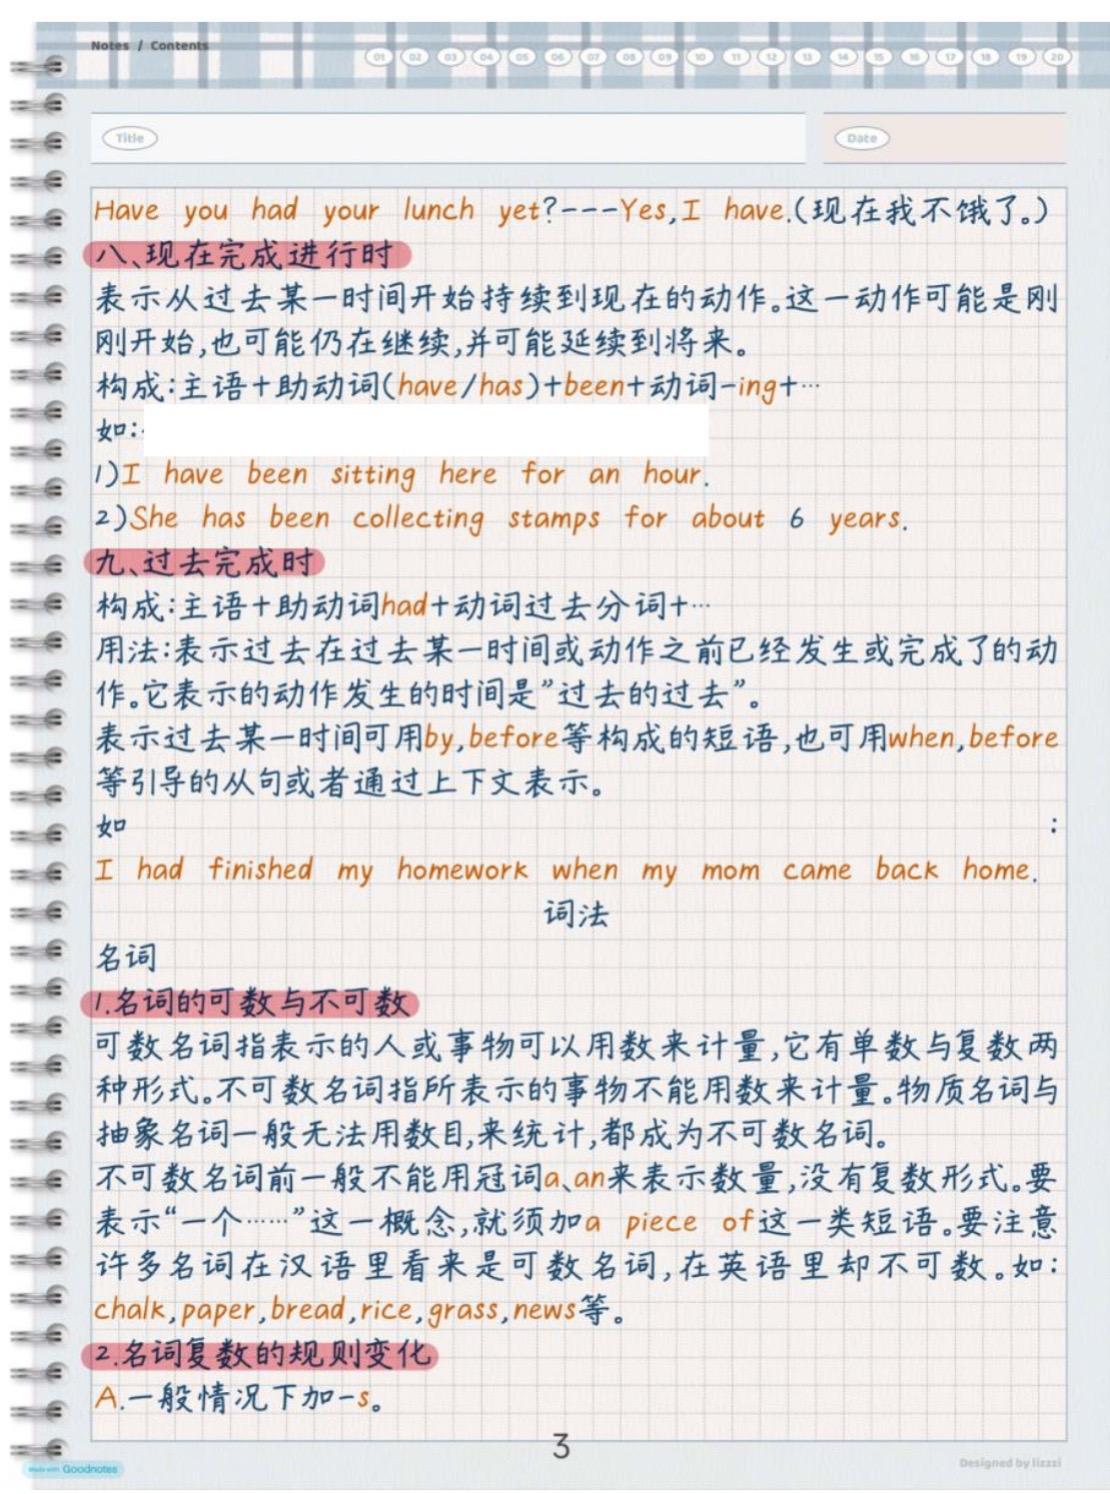 Notes / Contents
01 02 03 04 05 06 07 08 09 10 11 12 13 14 15 16 17 18 19 20
Title
Date
Have you had your lunch yet?---Yes,I have.(现在我不饿了。)
八、现在完成进行时
表示从过去某一时间开始持续到现在的动作。这一动作可能是刚
刚开始,也可能仍在继续,并可能延续到将来。
构成:主语+助动词(have/has)+been+动词-ing+…
如:
1)I have been sitting here for an hour.
2)She has been collecting stamps for about 6 years.
九、过去完成时
构成:主语+助动词had+动词过去分词+…
用法:表示过去在过去某一时间或动作之前已经发生或完成了的动
作。它表示的动作发生的时间是”过去的过去”。
表示过去某一时间可用by,before等构成的短语,也可用when,before
等引导的从句或者通过上下文表示。
如 :
I had finished my homework when my mom came back home.
词法
名词
1.名词的可数与不可数
可数名词指表示的人或事物可以用数来计量,它有单数与复数两
种形式。不可数名词指所表示的事物不能用数来计量。物质名词与
抽象名词一般无法用数目,来统计,都成为不可数名词。
不可数名词前一般不能用冠词a、an来表示数量,没有复数形式。要
表示“一个……”这一概念,就须加a piece of这一类短语。要注意
许多名词在汉语里看来是可数名词,在英语里却不可数。如:
chalk,paper,bread,rice,grass,news等。
2.名词复数的规则变化
A.一般情况下加-s。
3
Made with Goodnotes
Designed by lizzzi